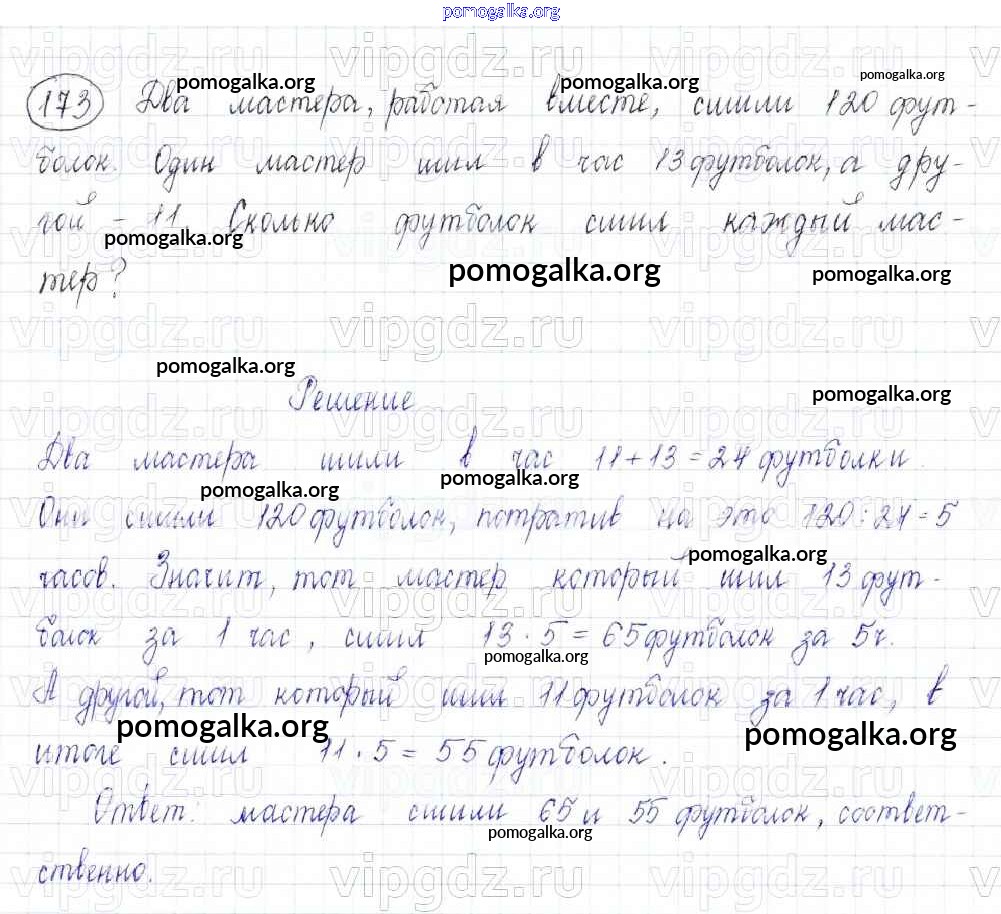 pomogalka.org
pomogalka.org pomogalka.org pomogalka.org
173 Два мастера, работая вместе, сшили 120 фут-
болок. Один мастер шил в час 13 футболок, а дру-
гой - 11. Сколько футболок сшил каждый мас-
pomogalka.org
тер?
pomogalka.org pomogalka.org
vipgdz.ru vipgdz.ru vipgdz.ru
pomogalka.org
pomogalka.org
Решение
Два мастера шили в час 11 + 13 = 24 футболки.
pomogalka.org pomogalka.org
Они сшили 120 футболок, потратив на это 120 : 24 = 5
pomogalka.org
часов. Значит, тот мастер который шил 13 фут-
болок за 1 час, сшил 13 · 5 = 65 футболок за 5ч.
pomogalka.org
А другой, тот который шил 11 футболок за 1 час, в
pomogalka.org pomogalka.org
итоге сшил 11 · 5 = 55 футболок.
Ответ: мастера сшили 65 и 55 футболок, соответ-
pomogalka.org
ственно.